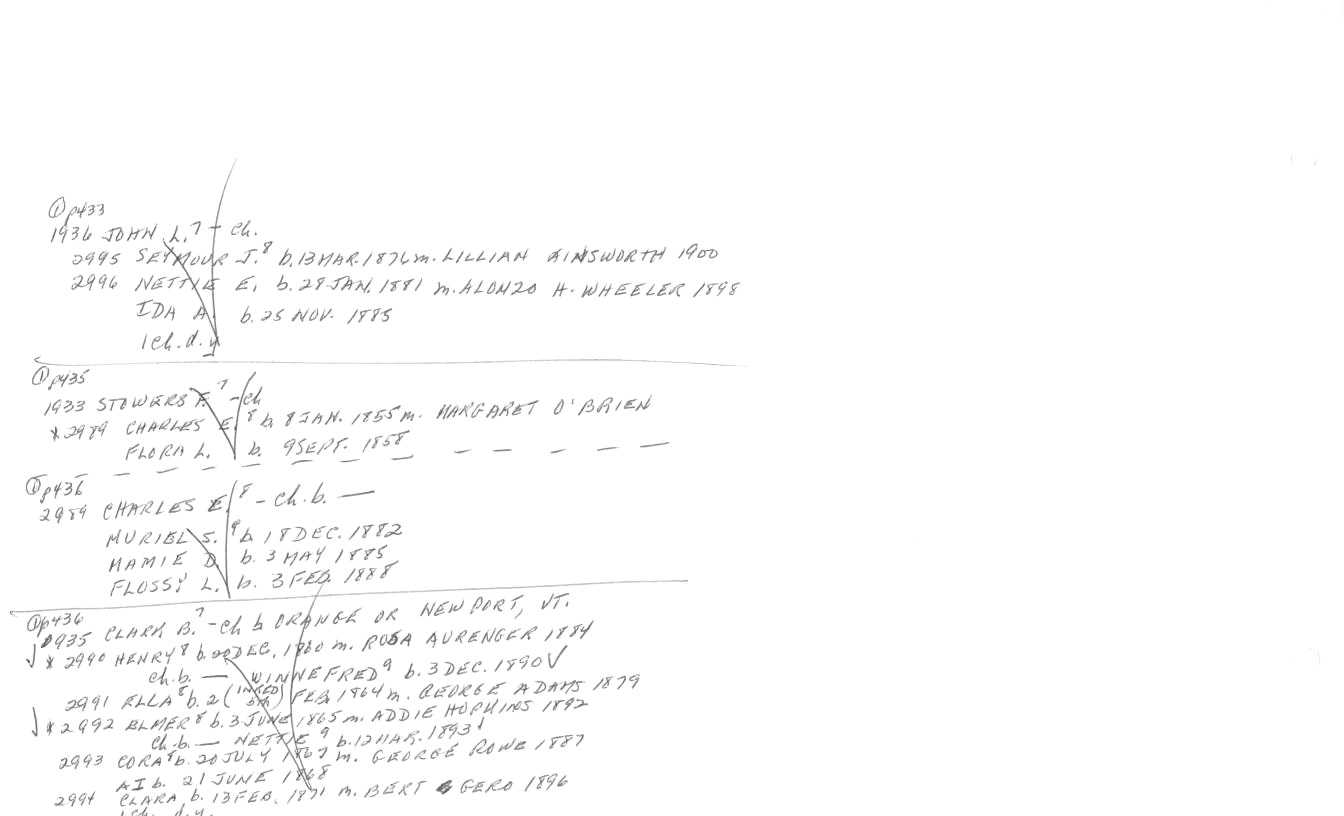 ① p433
1936 JOHN L.⁷ - ch.
2995 SEYMOUR J.⁸ b. 13 MAR. 1876 m. LILLIAN AINSWORTH 1900
2996 NETTIE E. b. 28 JAN. 1881 m. ALONZO H. WHEELER 1898
IDA A. b. 25 NOV. 1885
1 ch. d.y.
① p435
1933 STOWERS F.⁷ - ch
* 2989 CHARLES E.⁸ b. 8 JAN. 1855 m. MARGARET O'BRIEN
FLORA L. b. 9 SEPT. 1858
① p436
2989 CHARLES E.⁸ - ch. b. —
MURIEL S.⁹ b. 18 DEC. 1882
MAMIE D. b. 3 MAY 1885
FLOSSY L. b. 3 FEB. 1888
① p436
1935 CLARK B.⁷ - ch b ORANGE OR NEWPORT, VT.
* 2990 HENRY⁸ b. 20 DEC. 1860 m. ROSA AURENGER 1884
ch. b. — WINNEFRED⁹ b. 3 DEC. 1890 ✓
2991 ELLA⁸ b. 2 FEB. 1864 m. GEORGE ADAMS 1879
* 2992 ELMER⁸ b. 3 JUNE 1865 m. ADDIE HOPKINS 1892
ch. b. — NETTIE⁹ b. 12 MAR. 1893
2993 CORA⁸ b. 20 JULY 1867 m. GEORGE ROWE 1887
AI b. 21 JUNE 1868
2994 CLARA b. 13 FEB. 1871 m. BERT GERO 1896
1 ch. d.y.